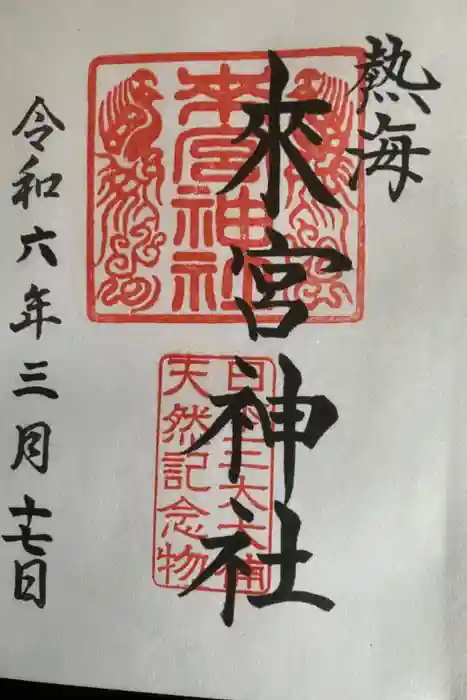 熱海
來宮神社
令和六年三月十七日
来宮神社
日本三大大楠
天然記念物